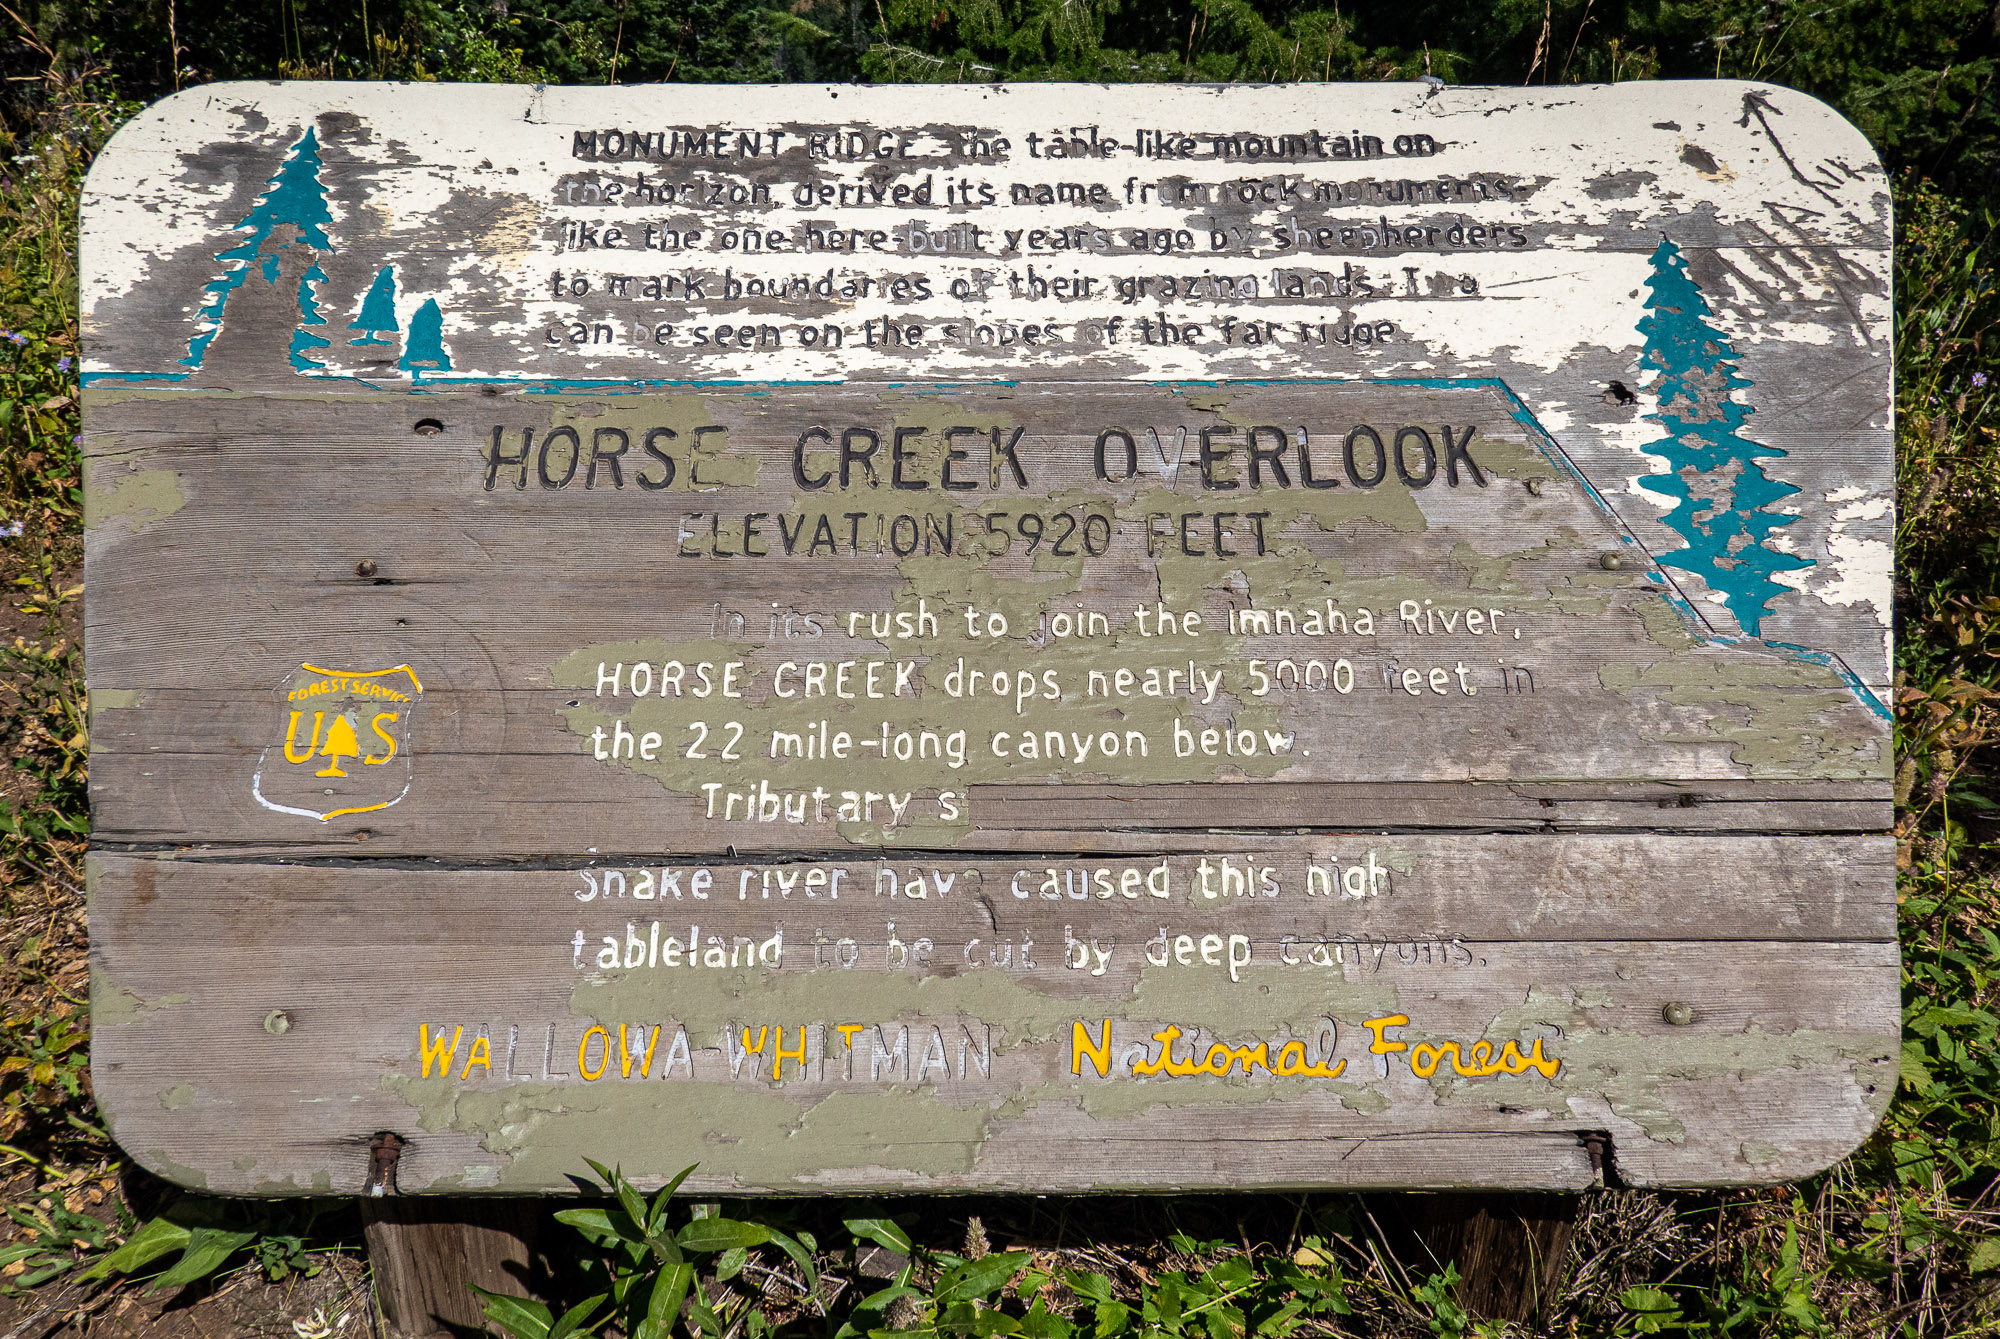 MONUMENT RIDGE. The table-like mountain on
the horizon, derived its name from rock monuments
like the one here-built years ago by sheepherders
to mark boundaries of their grazing lands. Two
can be seen on the slopes of the far ridge.
HORSE CREEK OVERLOOK
ELEVATION 5920 FEET
In its rush to join the Imnaha River,
HORSE CREEK drops nearly 5000 feet in
the 22 mile-long canyon below.
Tributary s
Snake river have caused this high
tableland to be cut by deep canyons.
FOREST SERVICE
U S
WALLOWA-WHITMAN National Forest